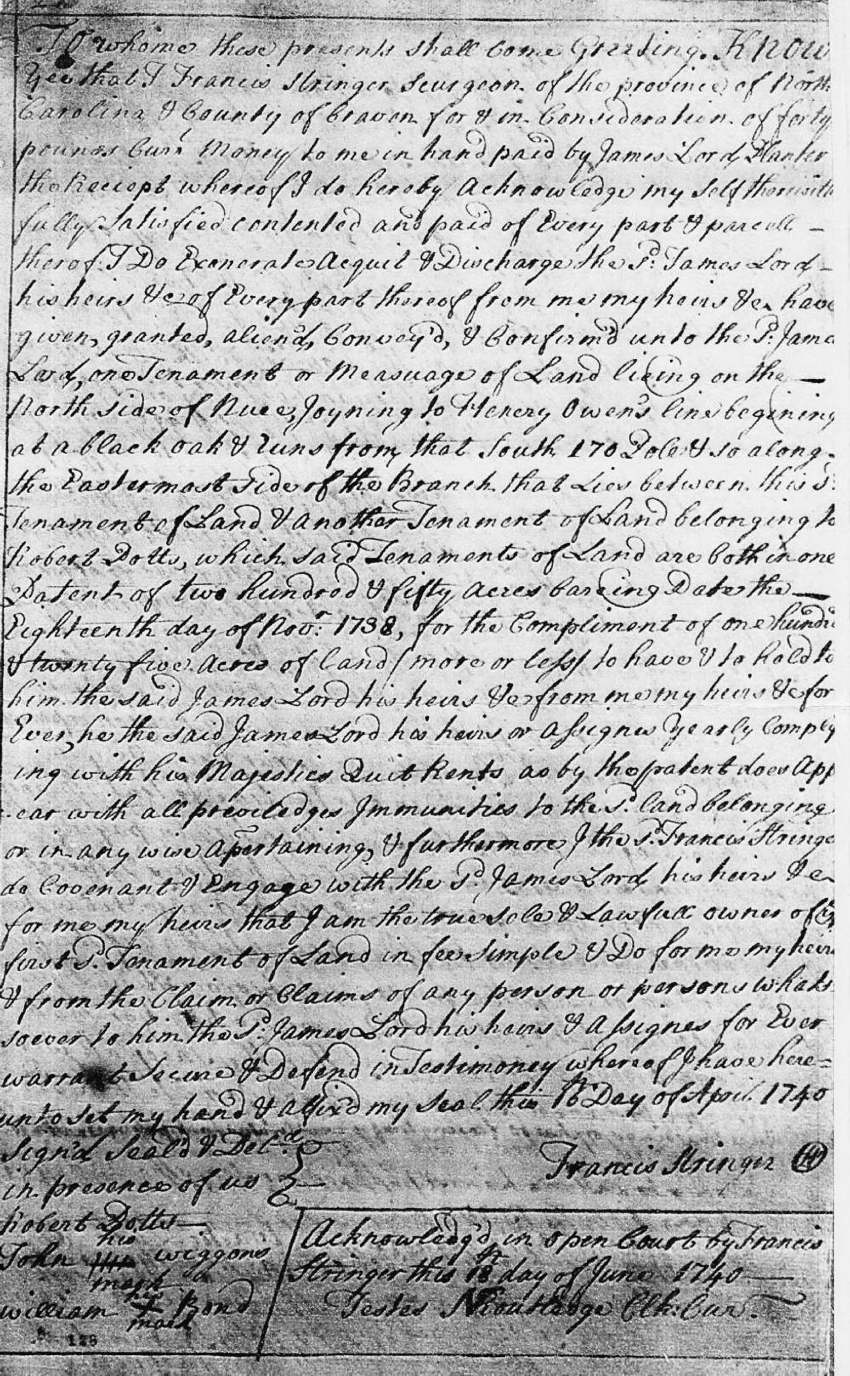 To whome these presents shall Come Greeting. Know
Yee that I Francis Stringer Scurgeon of the province of North
Carolina & County of Craven for & in Consideration of forty
pounds Curr: Money to me in hand paid by James Lord Planter
the Reciept whereof I do hereby Acknowledge my self therewith
fully Satisfied contented and paid of Every part & parcell –
therof I Do Exonerate Acquit & Discharge the Sd. James Lord –
his heirs &c of Every part thereof from me my heirs &c have
given, granted, alien'd, Convey'd, & Confirm'd unto the Sd. James
Lord, one Tenament or Measuage of Land lieing on the —
North side of Nuce, Joyning to Henery Owen's line begining
at a black oak & runs from that South 170 Pole & so along
the Eastermost side of the Branch that Lies between this Sd.
Tenament of Land & another Tenament of Land belonging to
Robert Dotts, which said Tenaments of Land are both in one
Patent of two hundred & fifty Acres bareing Date the —
Eighteenth day of Novr. 1738, for the Compliment of one hundrd
& twenty five Acres of land / more or less / to have & to hold to
him the said James Lord his heirs &c from me my heirs &c for
Ever, he the said James Lord his heirs or Assignes Yearly Comply
ing with his Majesties Quit Rents as by the patent does App
-ear with all previledges Immunities to the Sd. land belonging
or in any wise Apertaining, & furthermore I the Sd. Francis Stringer
do Covenant & Engage with the Sd. James Lord his heirs &c
for me my heirs that I am the true sole & Lawfull owner of
first Sd. Tenament of Land in fee simple & Do for me my heirs
& from the Claim or Claims of any person or persons whats
soever to him the Sd. James Lord his heirs & Assignes for Ever
warrant Secure & Defend in Testimoney whereof I have here=
unto set my hand & affix'd my seal this 16 Day of April 1740
Sign'd Seal'd & Deld.
in presence of us
Francis Stringer
Robert Dotts
John his mark Wiggons
William his + mark Bond
Acknowledg'd in open Court by Francis
Stringer this 18th day of June 1740 —
Testes N Routledge Clk: Cur.
128